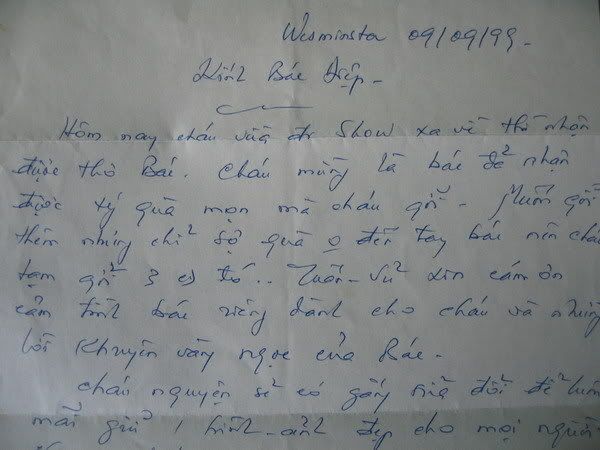 Wesminsta 09/09/99.
Kính Bác Điệp.
Hôm nay cháu vừa đi Show xa về thì nhận
được thơ Bác. Cháu mừng là bác đã nhận
được tý quà mọn mà cháu gởi. Muốn gởi
thêm nhưng chỉ sợ quà 0 đến tay bác nên cháu
tạm gởi 3 cd đó.. Tuấn-Vũ xin cám ơn
cảm tình bác riêng dành cho cháu và những
lời khuyên vàng ngọc của Bác.
Cháu nguyện sẽ cố gắng nữa đối để luôn
mãi giữ 1 hình-ảnh đẹp cho mọi người